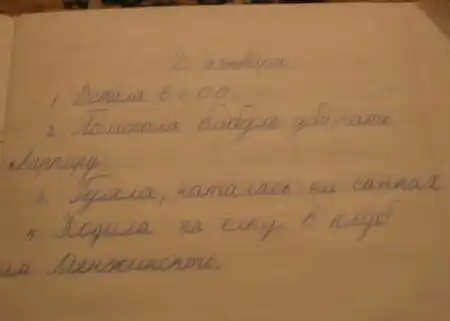 2 января
1. Встала в 9 00.
2. Помогала бабуле убирать
квартиру.
3. Гуляла, каталась на санках
4. Ходила на ёлку в клуб
им Менжинского.